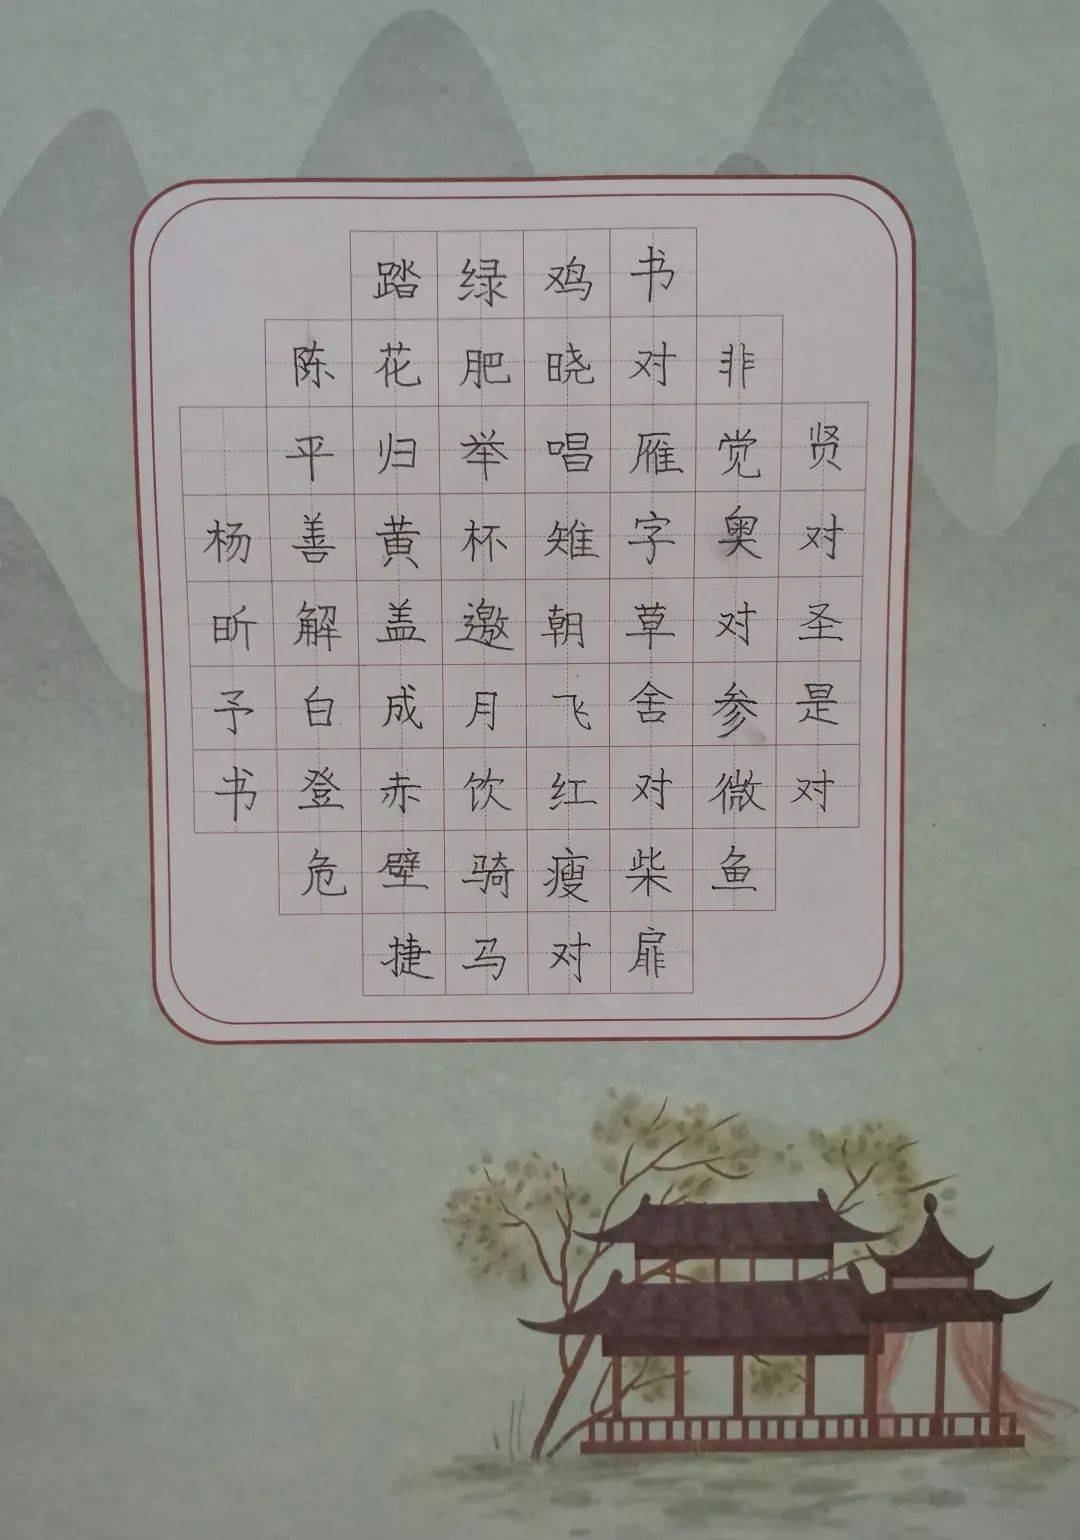 贤对圣是对
非觉奥对参微鱼
书对雁字草舍对柴扉
鸡晓唱雉朝飞红瘦对
绿肥举杯邀月饮骑马
踏花归黄盖成赤壁捷
陈平善解白登危
杨昕予书